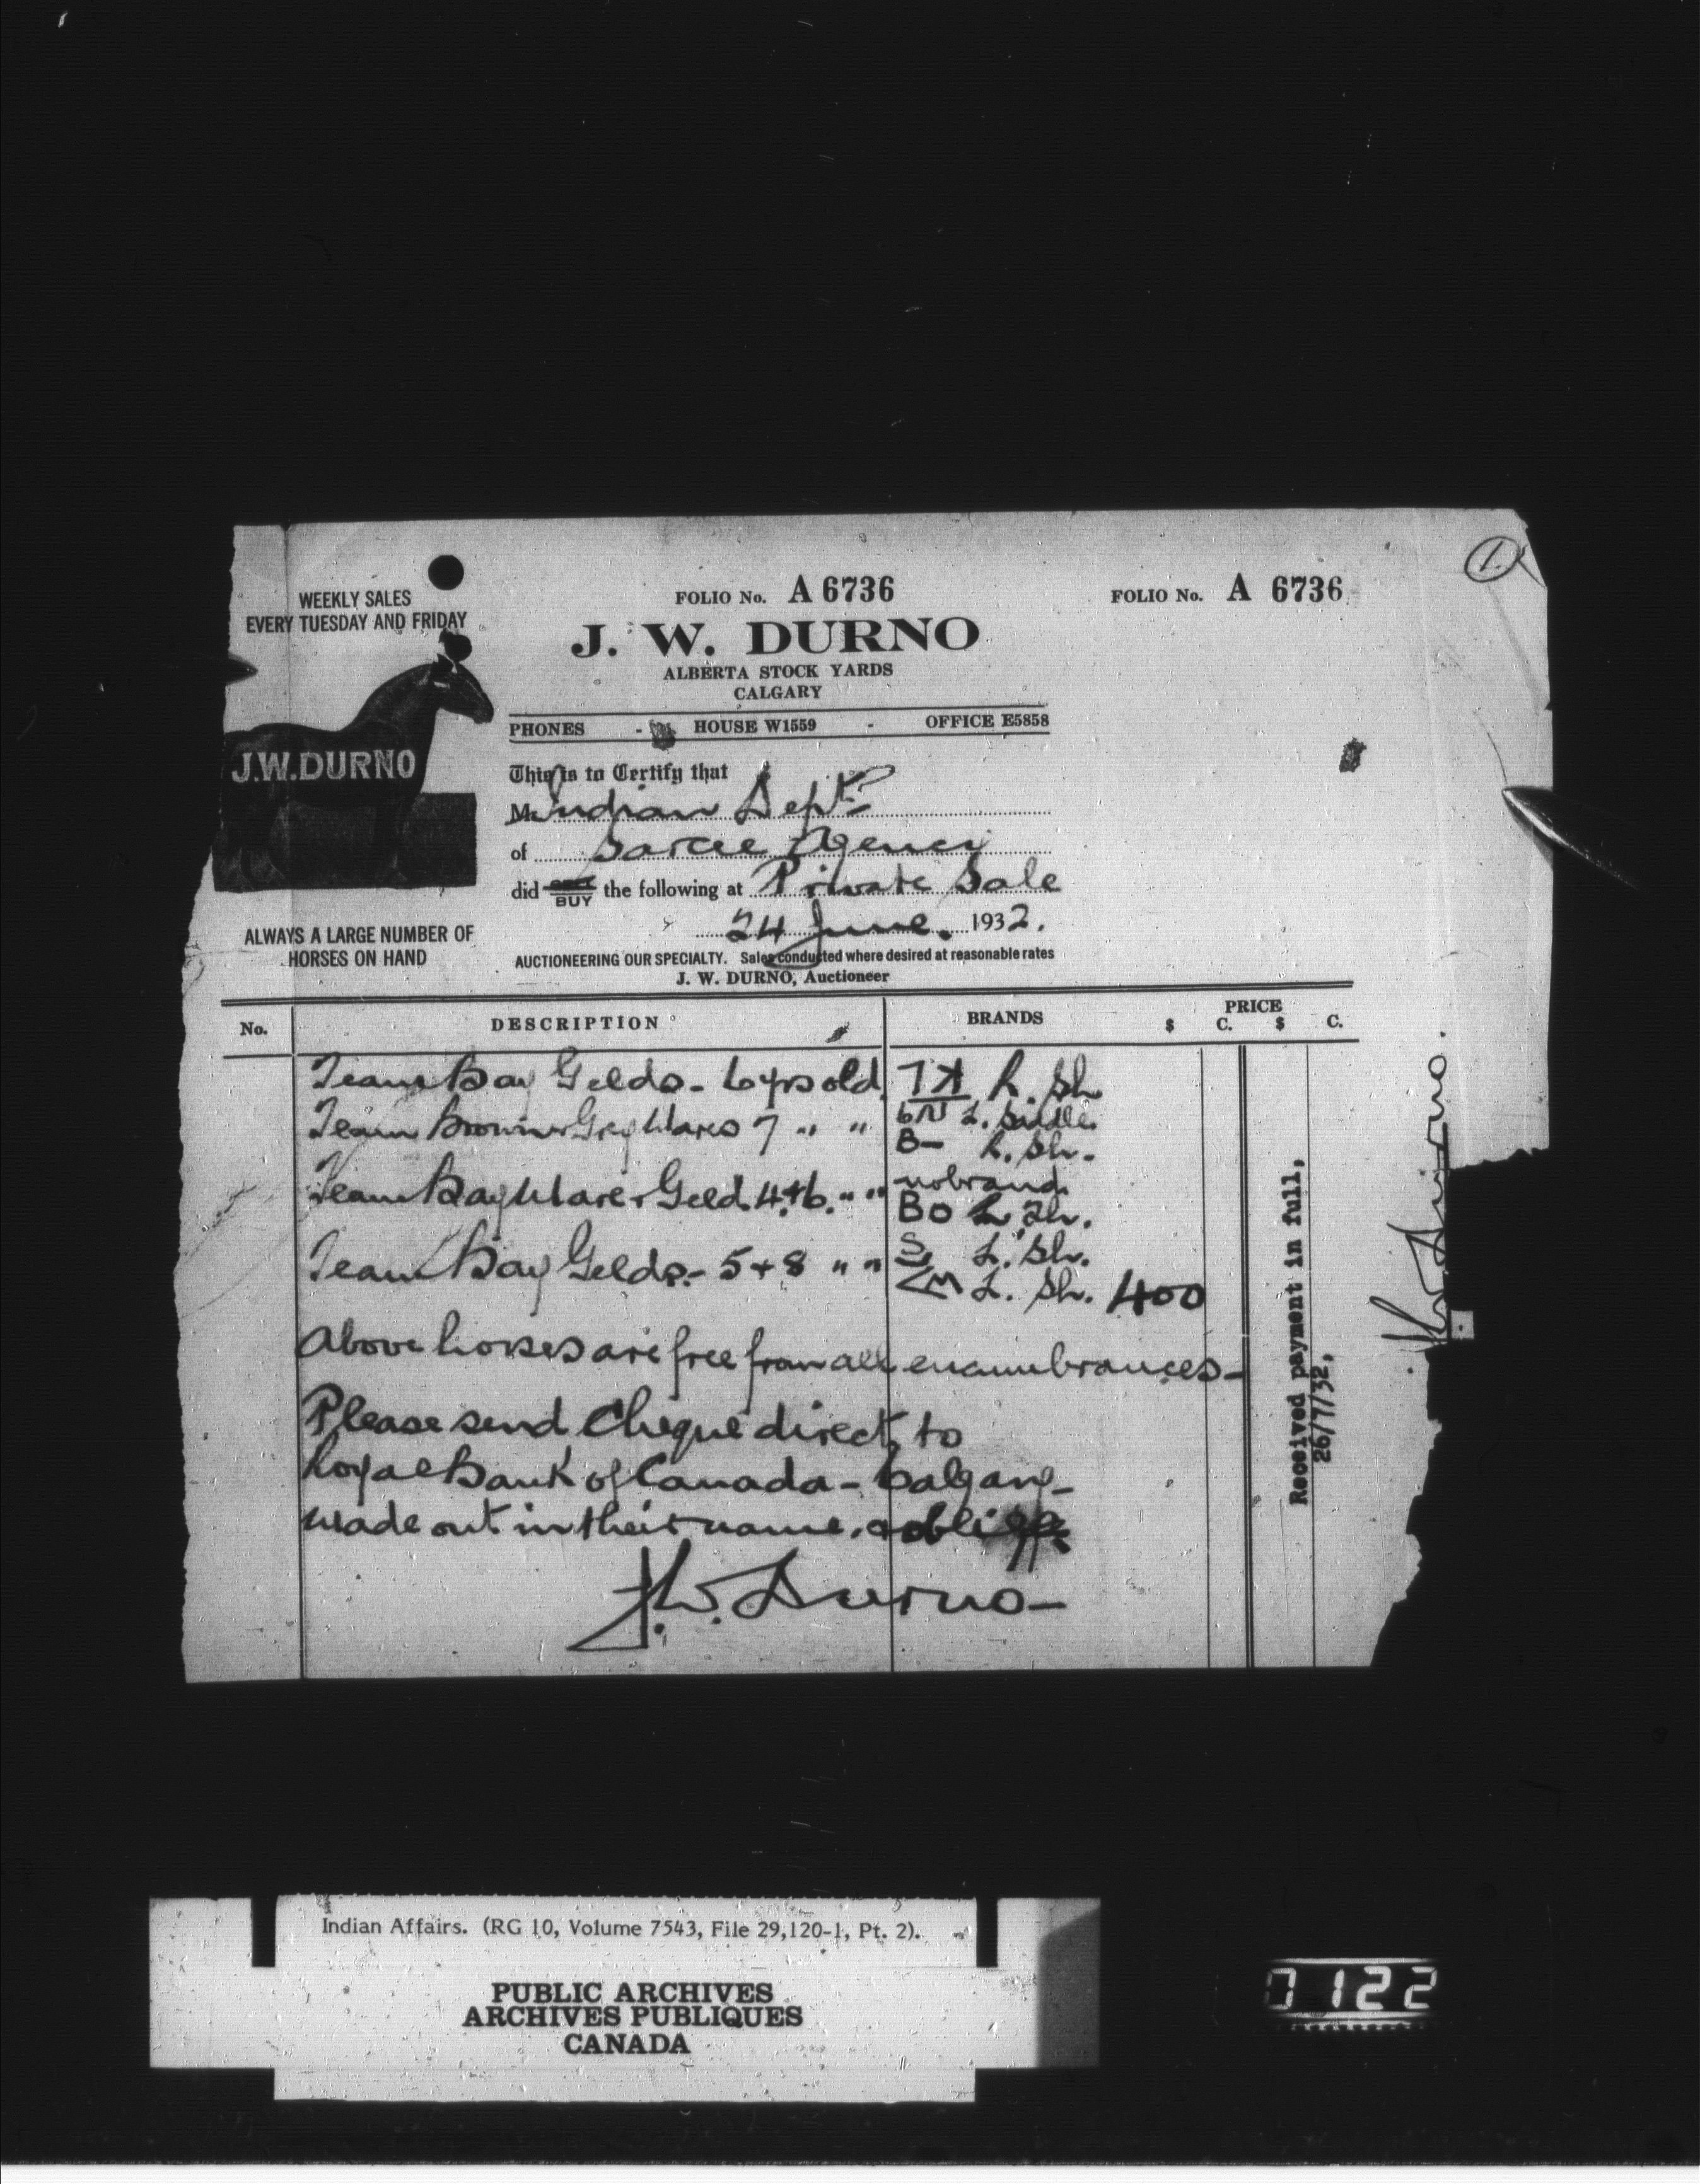 1.
WEEKLY SALES
EVERY TUESDAY AND FRIDAY
J.W.DURNO
ALWAYS A LARGE NUMBER OF
HORSES ON HAND
FOLIO No. A 6736
FOLIO No. A 6736
J. W. DURNO
ALBERTA STOCK YARDS
CALGARY
PHONES - HOUSE W1559 - OFFICE E5858
This is to Certify that
M Indian Dept.
of Sarcee Agency
did BUY the following at Private Sale
24 June. 1932.
AUCTIONEERING OUR SPECIALTY. Sales conducted where desired at reasonable rates
J. W. DURNO, Auctioneer
No. DESCRIPTION BRANDS PRICE
$ C. $ C.
Team Bay Gelds - 6 yrs old R. Sh
Team Brown & Grey Mares 7 " " L. Saddle
B- R. Sh.
Team Bay Mare & Geld. 4+6. " " no brand
BO R. Th.
Team Bay Gelds. - 5 + 8 " " S L. Sh.
L. Sh. 400
Above horses are free from all encumbrances -
Please send Cheque direct to
Royal Bank of Canada - Calgary -
Made out in their name. & oblige
J.W. Durno -
Received payment in full,
26/7/32,
J.W. Durno.
Indian Affairs. (RG 10, Volume 7543, File 29,120-1, Pt. 2).
PUBLIC ARCHIVES
ARCHIVES PUBLIQUES
CANADA
0122